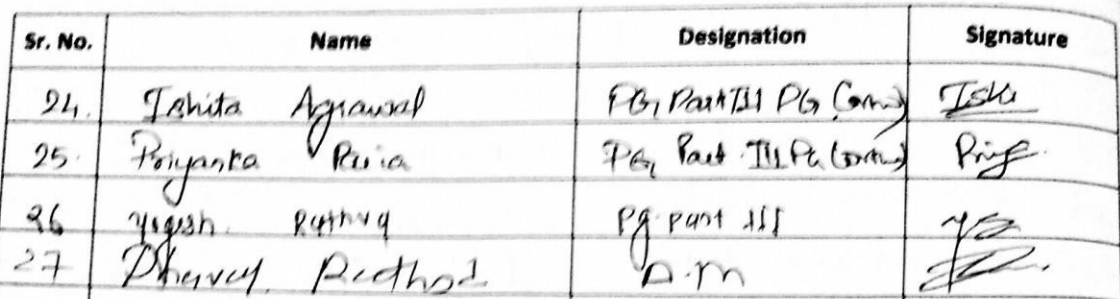 Sr. No. Name Designation Signature
24. Ishita Agrawal PG Part III PG
25. Priyanka Ruia PG Part III PG
26 Yogesh Rathva Pg part III
27 Dhaval Rathod D.M